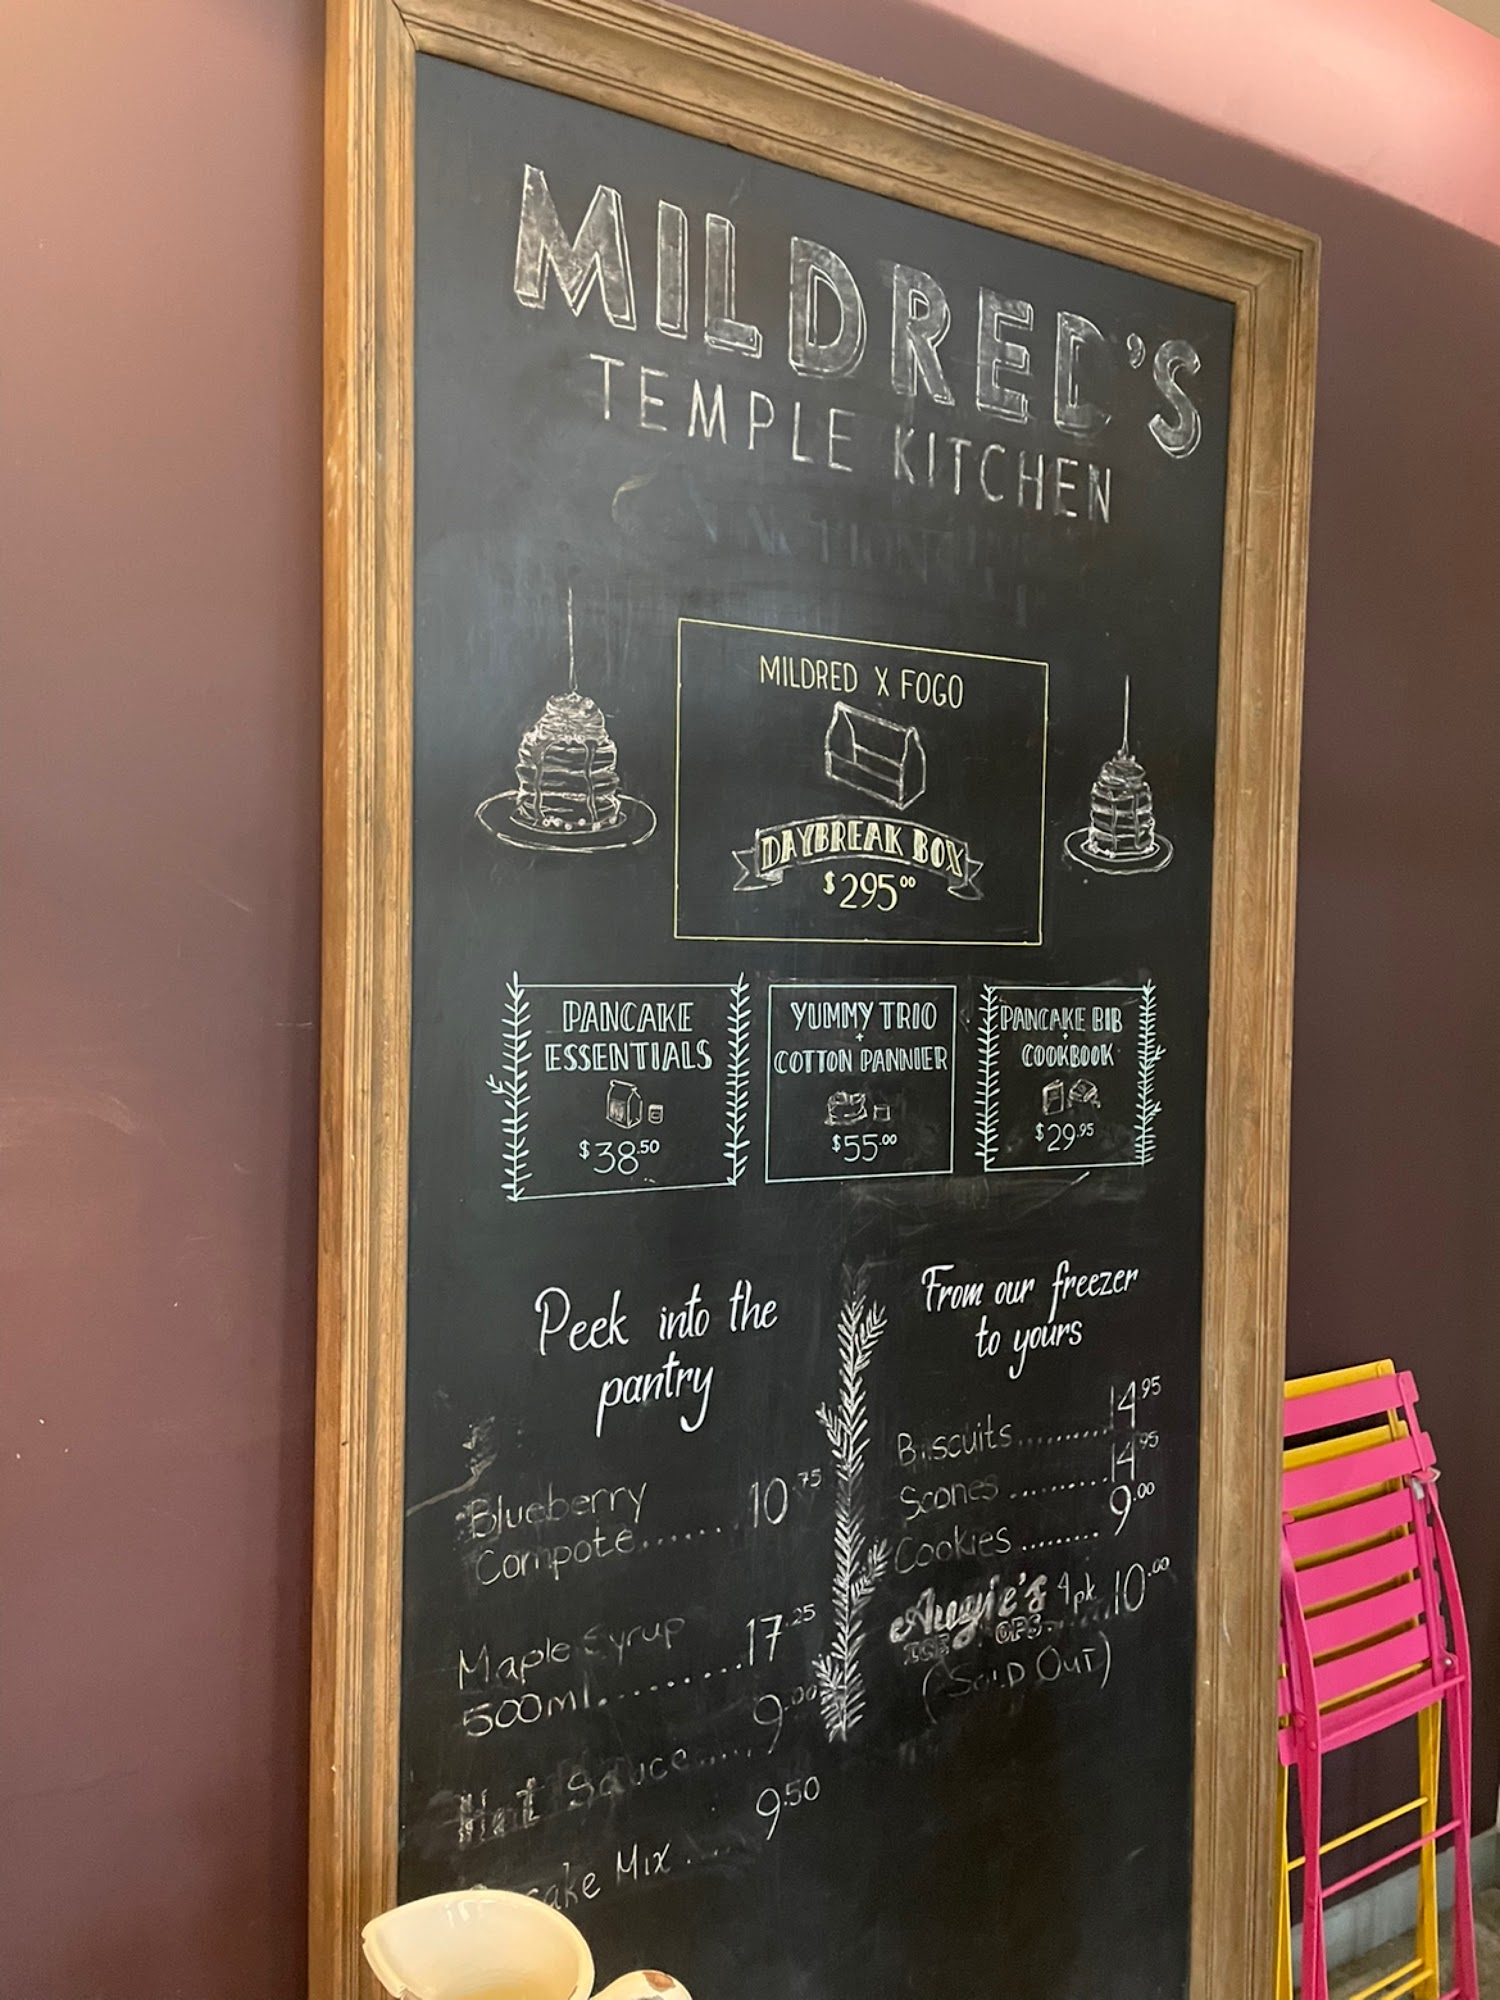 MILDRED'S
TEMPLE KITCHEN
MILDRED X FOGO
DAYBREAK BOX
$295.00
PANCAKE
ESSENTIALS
$38.50
YUMMY TRIO
+
COTTON PANNIER
$55.00
PANCAKE BIB
+
COOKBOOK
$29.95
Peek into the
pantry
Blueberry
Compote....... 10.75
Maple Syrup
500ml.......... 17.25
Hot Sauce..... 9.00
cake Mix ..... 9.50
From our freezer
to yours
Biscuits.......... 14.95
Scones ......... 14.95
Cookies ......... 9.00
Augie's 4pk 10.00
ICE OPS
(Sold Out)